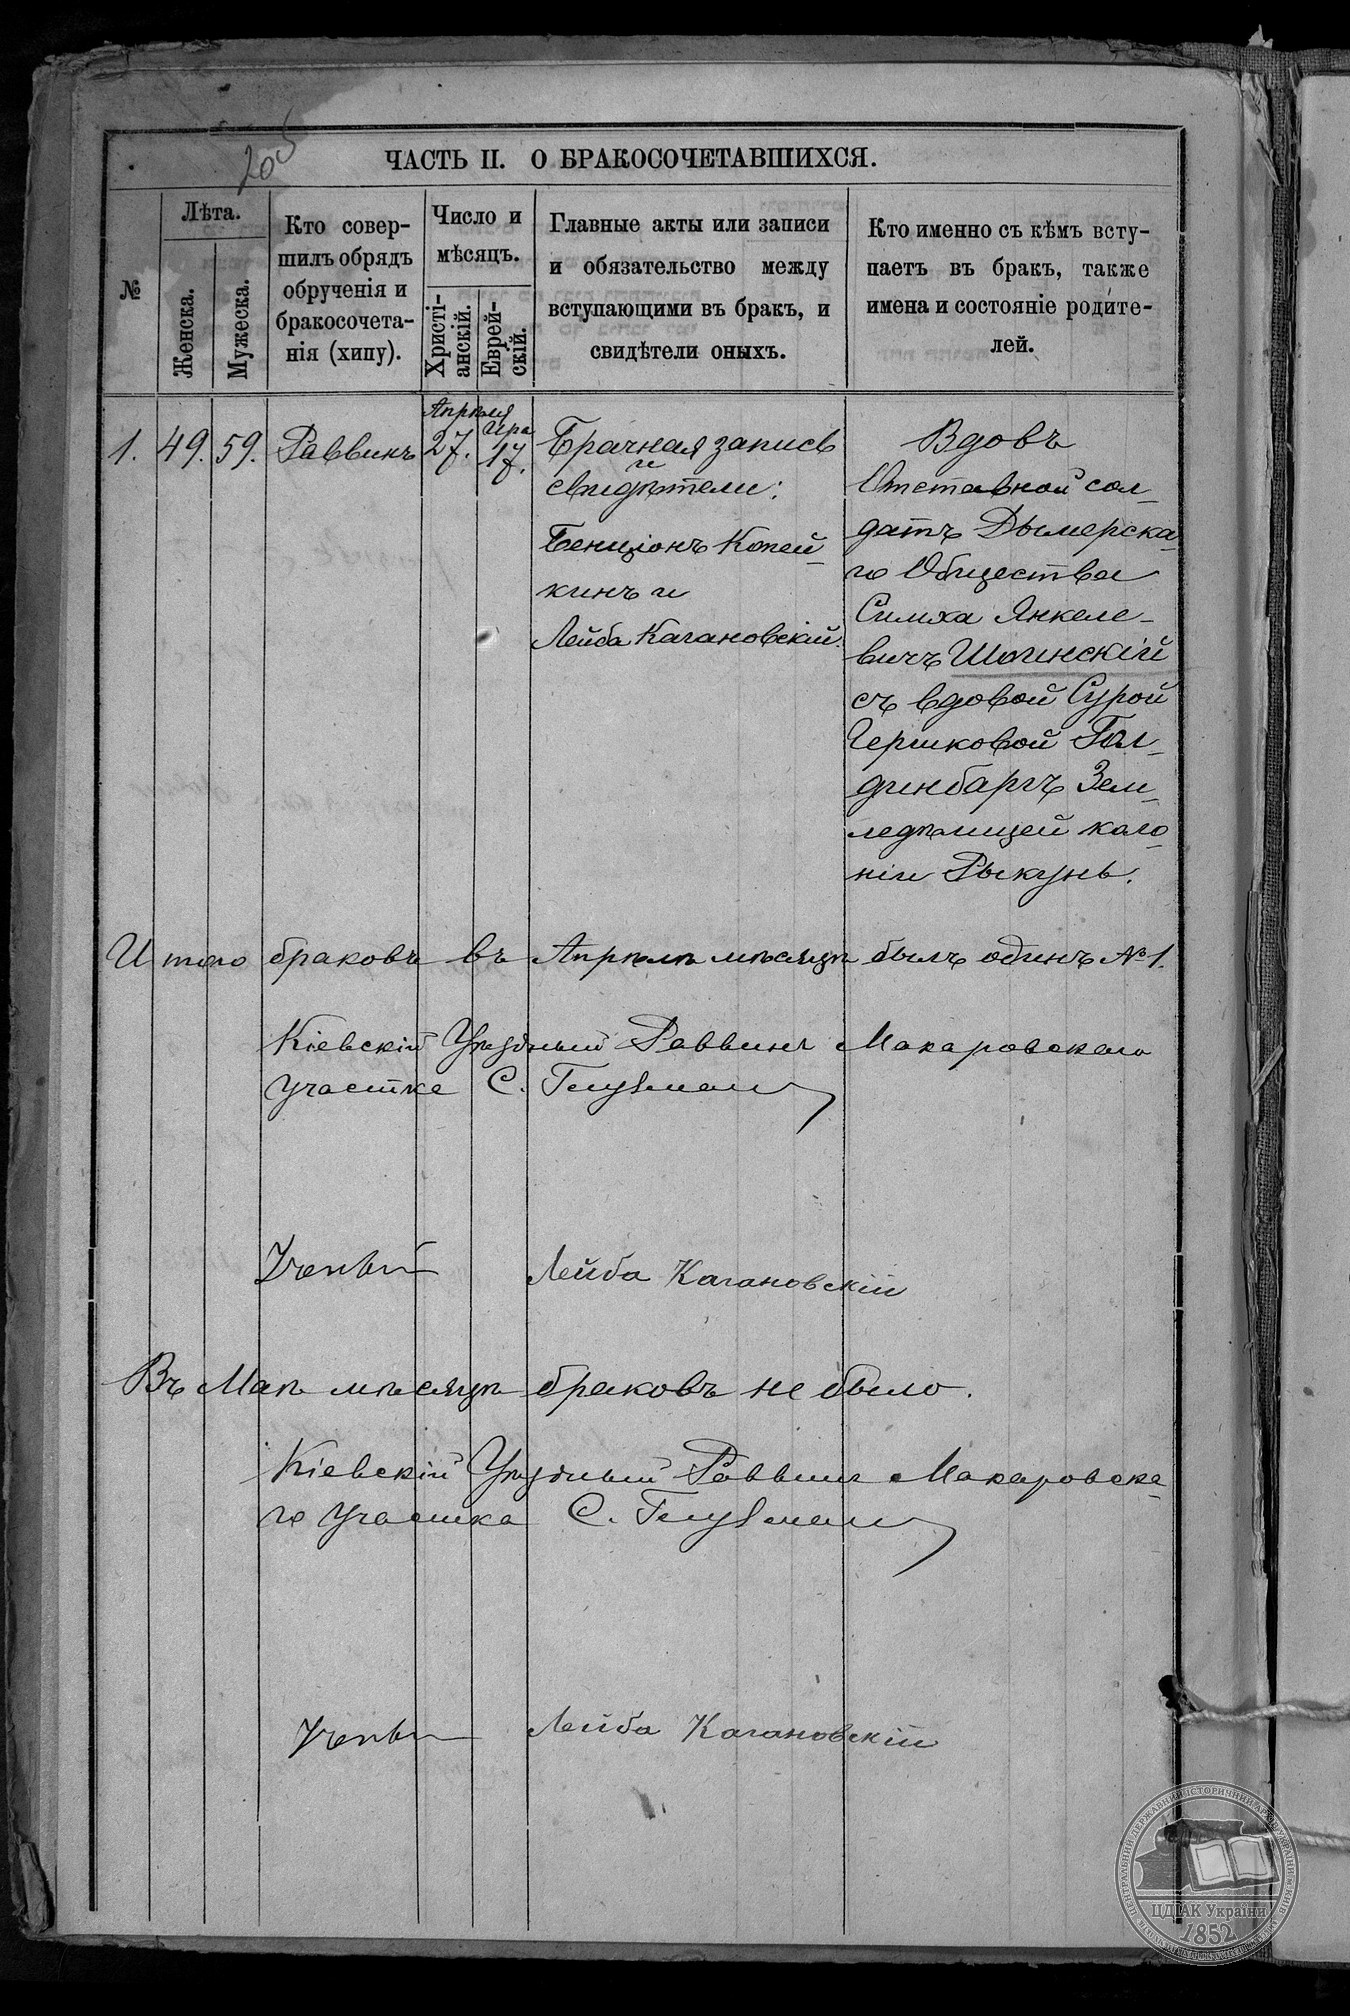 205
ЧАСТЬ II. О БРАКОСОЧЕТАВШИХСЯ.
№
Лѣта.
Женска.
Мужеска.
Кто совер-
шилъ обрядъ
обрученія и
бракосочета-
нія (хипу).
Число и
мѣсяцъ.
Христі-
анскій.
Еврей-
скій.
Главные акты или записи
и обязательство между
вступающими въ бракъ, и
свидѣтели оныхъ.
Кто именно съ кѣмъ всту-
паетъ въ бракъ, также
имена и состояніе родите-
лей.
1.
49.
59.
Раввинъ
Апрѣля
27.
Ира
17.
Брачная запись
и
свидѣтели:
Бенціонъ Копей-
кинъ и
Лейба Кагановскій.
Вдовъ
Отставной сол-
датъ Дымерска-
го Общества
Симха Янкеле-
вичъ Шогинскій
съ вдовой Сурой
Гершковой Гол-
динбаргъ Зем-
ледѣлицей коло-
ніи Рыкунь.
Итого браковъ въ Апрѣлѣ мѣсяцѣ былъ одинъ № 1.
Кіевскій Уѣздный Раввинъ Макаровскаго
участка С. Глузман
Ученый Лейба Кагановскій
Въ Маѣ мѣсяцѣ браковъ не было.
Кіевскій Уѣздный Раввинъ Макаровска-
го участка С. Глузман
Ученый Лейба Кагановскій
ЦДІАК України
1852